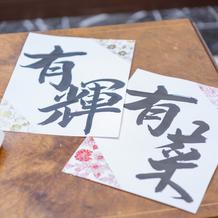 有輝
有菜